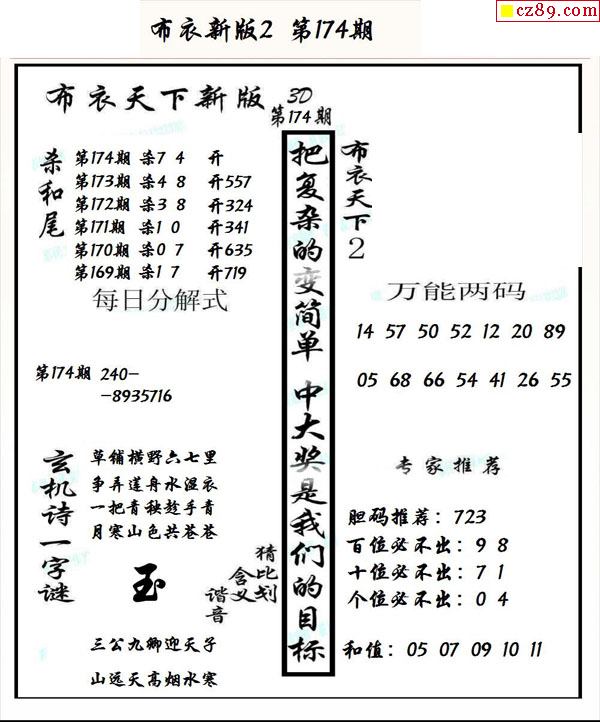 cz89.com
布衣新版2 第174期
布衣天下新版 3D
第174期
杀和尾
第174期 杀7 4 开
第173期 杀4 8 开557
第172期 杀3 8 开324
第171期 杀1 0 开341
第170期 杀0 7 开635
第169期 杀1 7 开719
每日分解式
第174期 240-
-8935716
玄机诗一字谜
草铺横野六七里
争弄莲舟水湿衣
一把青秧趁手青
月寒山色共苍苍
玉
猜比划
含义
谐音
三公九卿迎天子
山远天高烟水寒
把复杂的变简单 中大奖是我们的目标
布衣天下2
万能两码
14 57 50 52 12 20 89
05 68 66 54 41 26 55
专家推荐
胆码推荐：723
百位必不出：9 8
十位必不出：7 1
个位必不出：0 4
和值：05 07 09 10 11